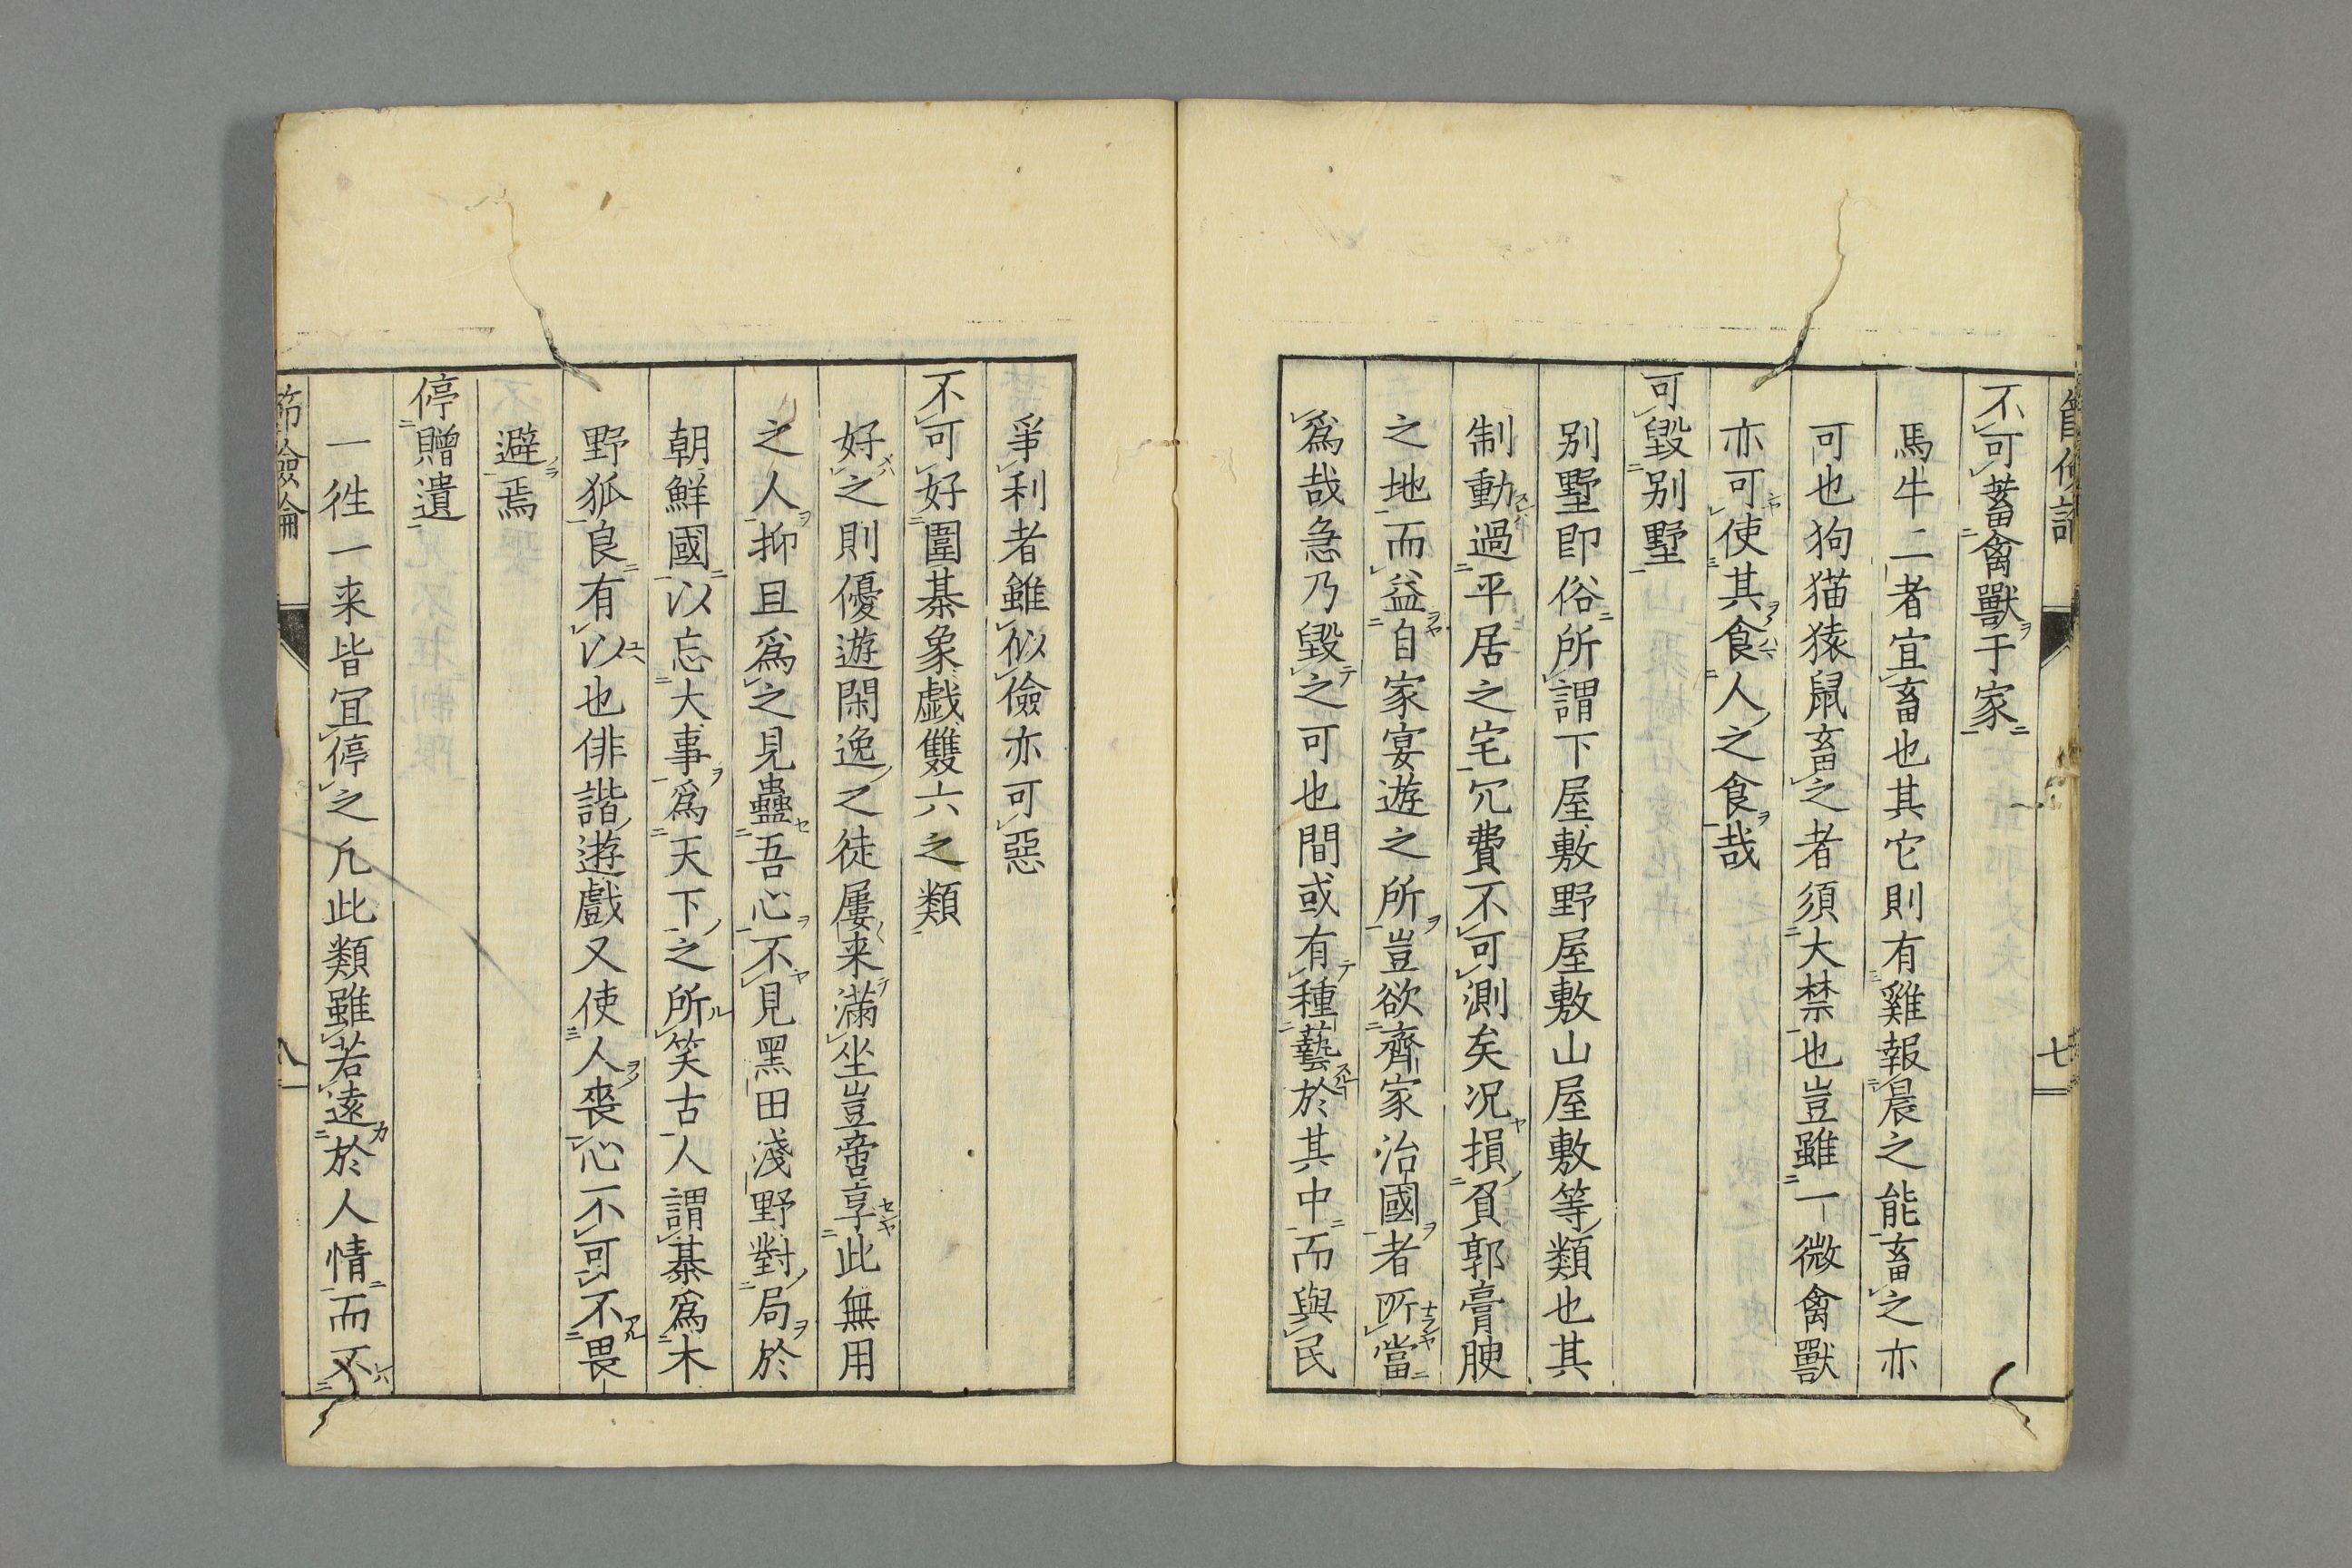 不可蓄禽獸于家
馬牛二者宜畜也其它則有雞報晨之能畜之亦
可也狗猫猿鼠畜之者須大禁也豈雖一微禽獸
亦可使其食人之食哉
可毀別墅
別墅即俗所謂下屋敷野屋敷山屋敷等類也其
制動過平居之宅冗費不可測矣况損負郭膏腴
之地而益自家宴遊之所豈欲齊家治國者所當
為哉急乃毀之可也間或有種藝於其中而與民
七
爭利者雖似儉亦可惡
不可好圍棊象戲雙六之類
好之則優遊閑逸之徒屢来滿坐豈啻享此無用
之人抑且為之見蠱吾心不見黑田淺野對局於
朝鮮國以忘大事為天下之所笑古人謂棊為木
野狐良有以也俳諧遊戲又使人喪心不可不畏
避焉
停贈遺
一徃一来皆宜停之凡此類雖若遠於人情而不
節儉論
八